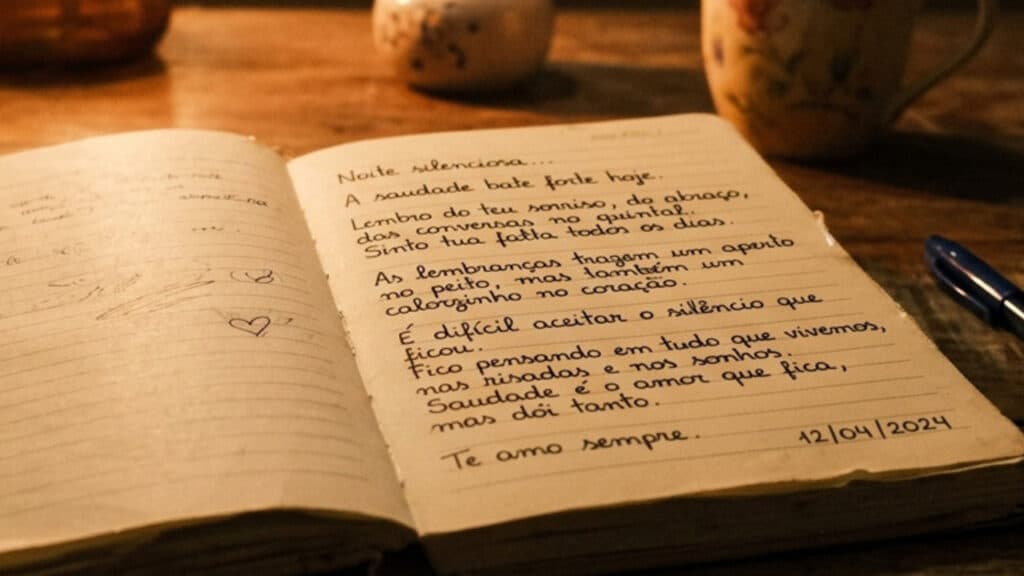 Noite silenciosa...
A saudade bate forte hoje.
Lembro do teu sorriso, do abraço,
das conversas no quintal.
Sinto tua falta todos os dias.
As lembranças trazem um aperto
no peito, mas também um
calorzinho no coração.
É difícil aceitar o silêncio que
ficou.
Fico pensando em tudo que vivemos,
nas risadas e nos sonhos.
Saudade é o amor que fica,
mas dói tanto.
Te amo sempre.
12/04/2024